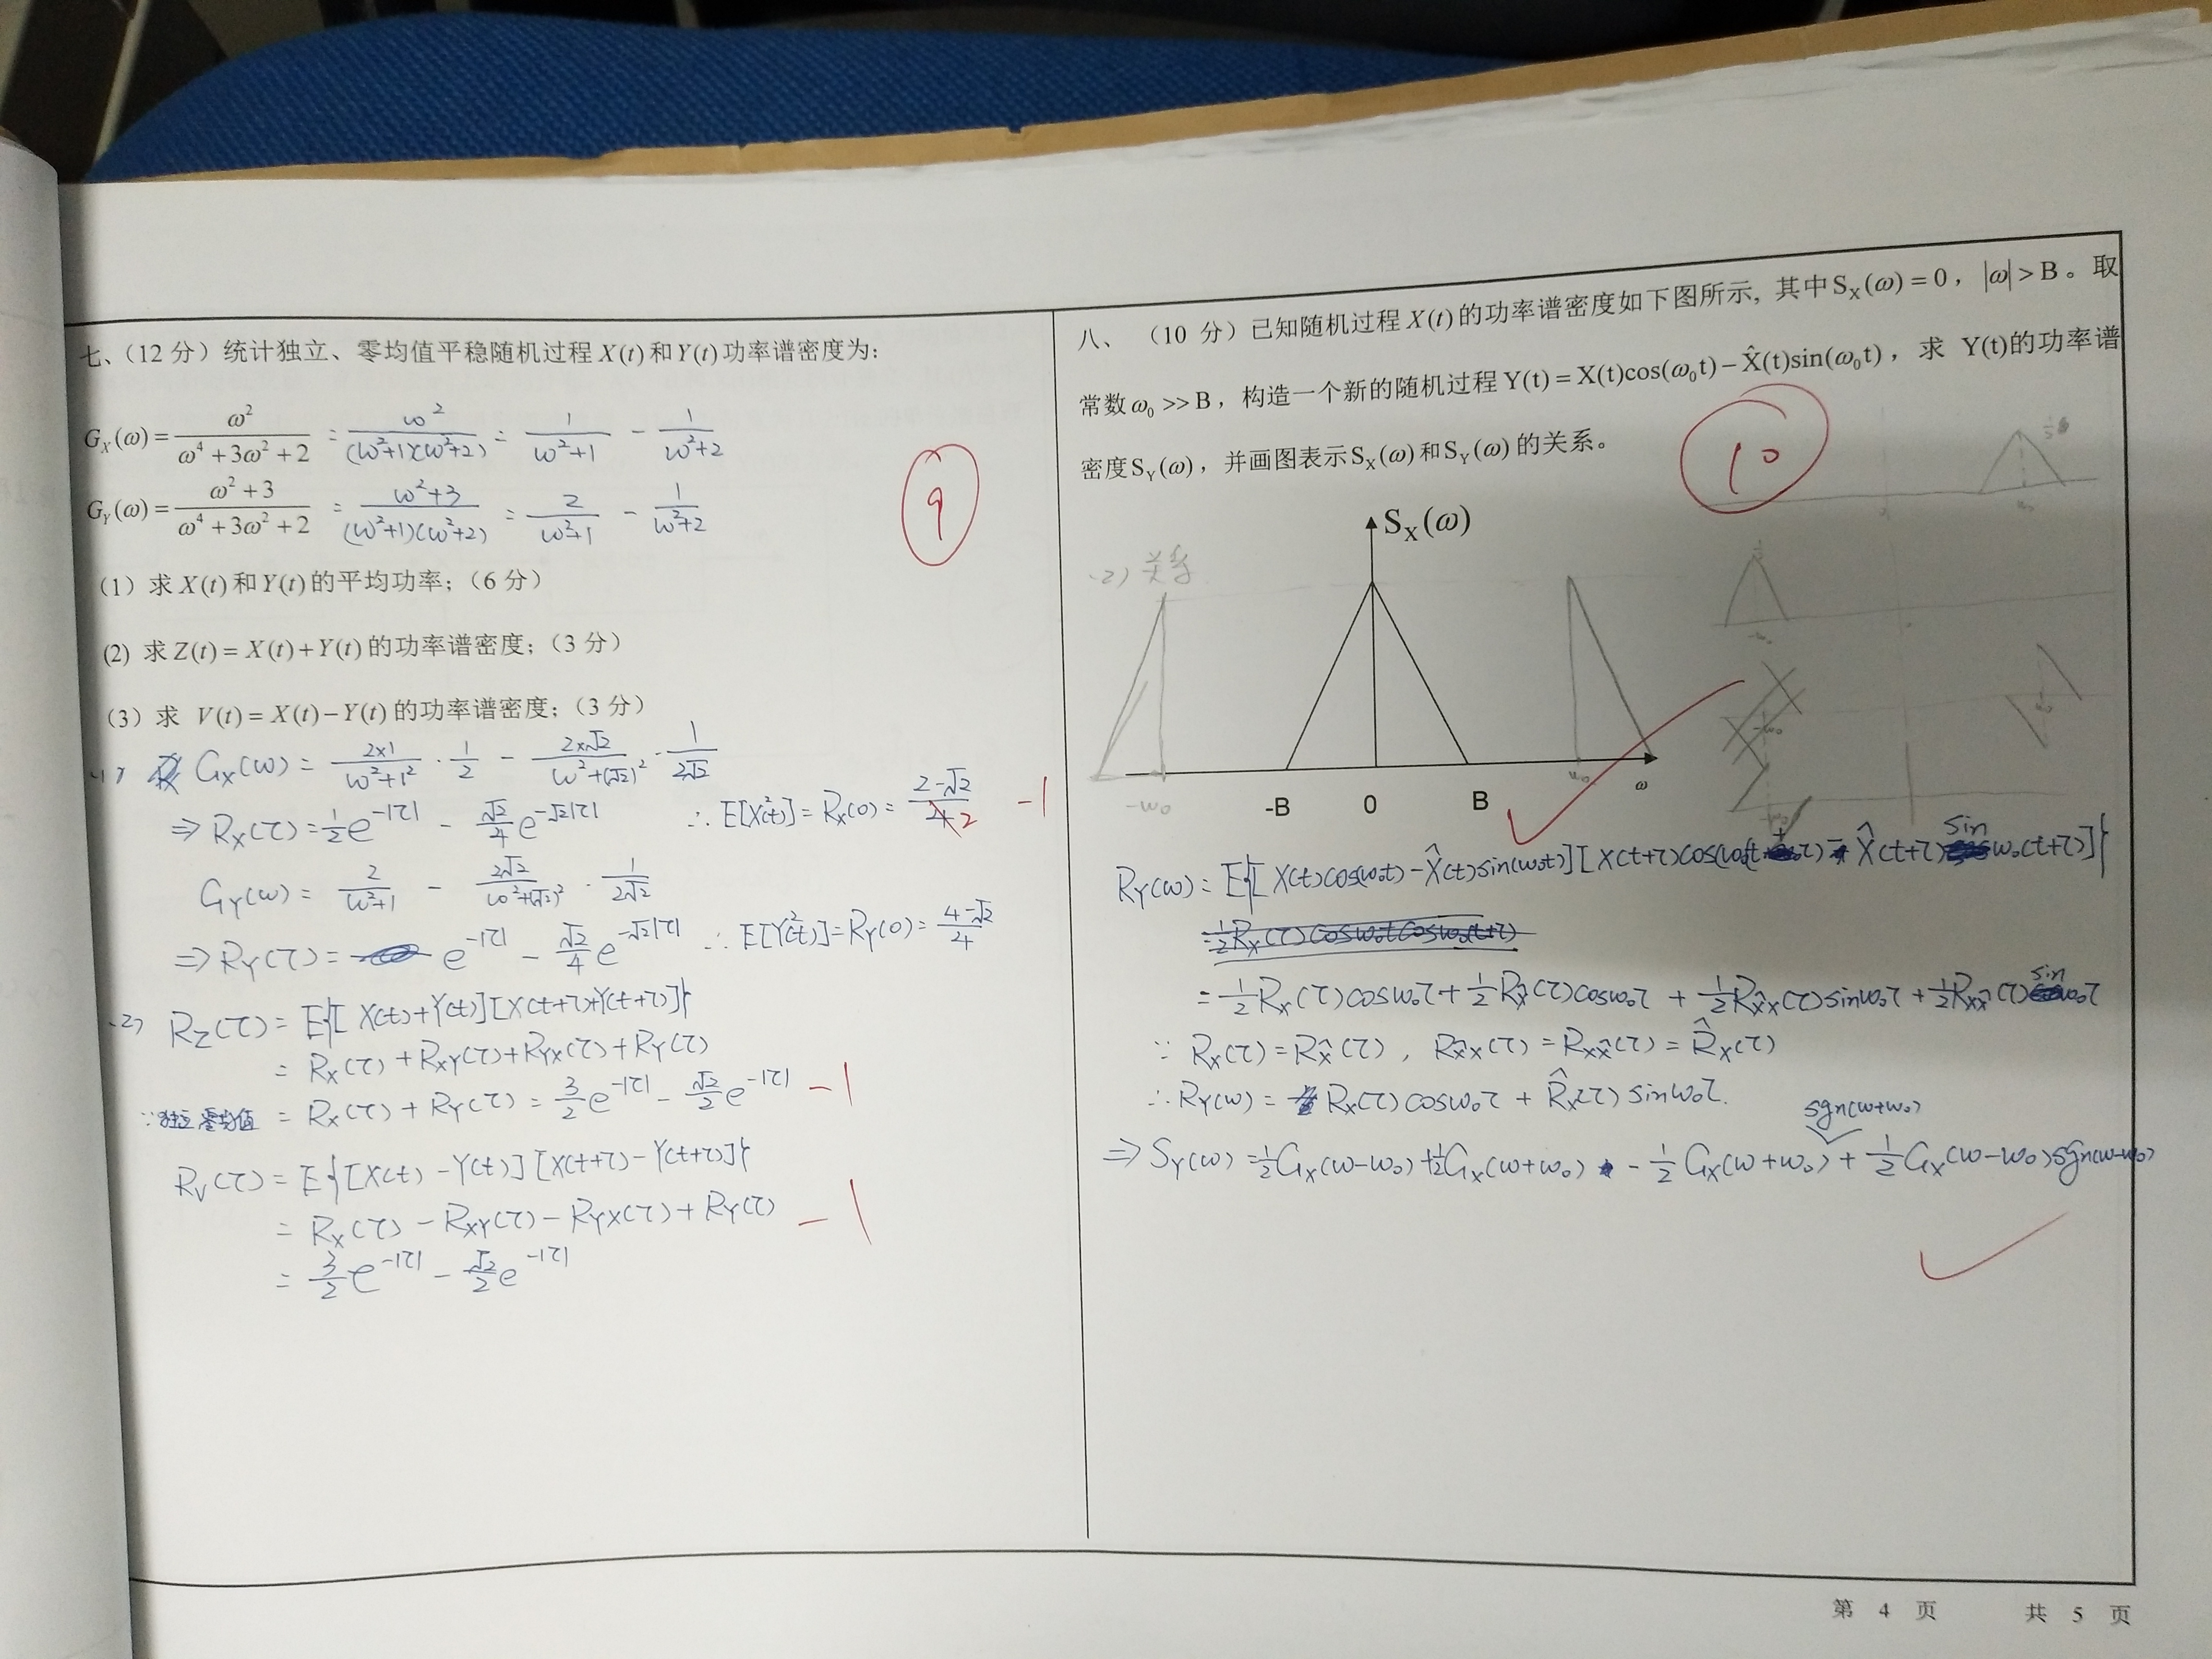 七、（12 分）统计独立、零均值平稳随机过程 X(t) 和 Y(t) 功率谱密度为：
G_X(ω) = ω² / (ω⁴ + 3ω² + 2) = ω² / ((ω²+1)(ω²+2)) = 1/(ω²+1) − 1/(ω²+2)
G_Y(ω) = (ω² + 3) / (ω⁴ + 3ω² + 2) = (ω²+3) / ((ω²+1)(ω²+2)) = 2/(ω²+1) − 1/(ω²+2)
9
（1）求 X(t) 和 Y(t) 的平均功率；（6 分）
(2) 求 Z(t) = X(t) + Y(t) 的功率谱密度；（3 分）
（3）求 V(t) = X(t) − Y(t) 的功率谱密度；（3 分）
(1) G_X(ω) = (2×1)/(ω²+1²) · 1/2 − (2×√2)/(ω²+(√2)²) · 1/(2√2)
⇒ R_X(τ) = 1/2 e^{−|τ|} − √2/4 e^{−√2|τ|} ∴ E[X²(t)] = R_X(0) = (2−√2)/4 2 −1
G_Y(ω) = 2/(ω²+1) − 2√2/(ω²+(√2)²) · 1/(2√2)
⇒ R_Y(τ) = e^{−|τ|} − √2/4 e^{−√2|τ|} ∴ E[Y²(t)] = R_Y(0) = (4−√2)/4
(2) R_Z(τ) = E{[X(t)+Y(t)][X(t+τ)+Y(t+τ)]}
= R_X(τ) + R_XY(τ) + R_YX(τ) + R_Y(τ)
∵独立 零均值 = R_X(τ) + R_Y(τ) = 3/2 e^{−|τ|} − √2/2 e^{−|τ|} −1
R_V(τ) = E{[X(t) − Y(t)][X(t+τ) − Y(t+τ)]}
= R_X(τ) − R_XY(τ) − R_YX(τ) + R_Y(τ) −1
= 3/2 e^{−|τ|} − √2/2 e^{−|τ|}
八、（10 分）已知随机过程 X(t) 的功率谱密度如下图所示, 其中 S_X(ω) = 0，|ω| > B。取
常数 ω₀ >> B，构造一个新的随机过程 Y(t) = X(t)cos(ω₀t) − X̂(t)sin(ω₀t)，求 Y(t)的功率谱
密度 S_Y(ω)，并画图表示 S_X(ω) 和 S_Y(ω) 的关系。
10
S_X(ω)
(2) 关系
−ω₀ -B 0 B ω₀ ω
R_Y(ω) = E{[X(t)cos(ω₀t) − X̂(t)sin(ω₀t)][X(t+τ)cos(ω₀(t+τ) − X̂(t+τ) sin ω₀(t+τ)]}
= 1/2 R_X(τ) cosω₀t cosω₀(t+τ)
= 1/2 R_X(τ)cosω₀τ + 1/2 R_X̂(τ)cosω₀τ + 1/2 R_X̂X(τ)sinω₀τ + 1/2 R_XX̂(τ) sin ω₀τ
∵ R_X(τ) = R_X̂(τ) , R_X̂X(τ) = R_XX̂(τ) = R̂_X(τ)
∴ R_Y(ω) = R_X(τ) cosω₀τ + R̂_X(τ) sinω₀τ.
⇒ S_Y(ω) = 1/2 G_X(ω−ω₀) + 1/2 G_X(ω+ω₀) − 1/2 G_X(ω+ω₀) sgn(ω+ω₀) + 1/2 G_X(ω−ω₀) sgn(ω−ω₀)
第 4 页 共 5 页